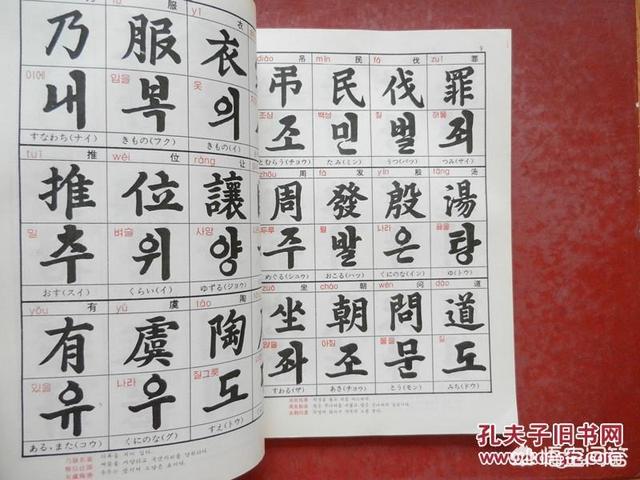 服 yī 衣
乃 服 衣
이에 내 입을 복 옷 의
すなわち(ナイ) きもの(フク) きもの(イ)
tuī 推 wèi 位 ràng 让
推 位 讓
밀 추 벼슬 위 사양 양
おす(スイ) くらい(イ) ゆずる(ジョウ)
yǒu 有 yú 虞 táo 陶
有 虞 陶
있을 유 나라 우 질그릇 도
ある、また(コウ) くにのな(グ) すえ(トウ)
diào 吊 mín 民 fá 伐 zuì 罪
弔 民 伐 罪
조상 조 백성 민 칠 벌 허물 죄
とむらう(チョウ) たみ(ミン) うつ(バツ) つみ(ザイ)
zhōu 周 fā 发 yīn 殷 tāng 汤
周 發 殷 湯
두루 주 필 발 나라 은 끓을 탕
めぐる(シュウ) おこる(ハツ) くにのな(イン) ゆ(トウ)
zuò 坐 cháo 朝 wèn 问 dào 道
坐 朝 問 道
앉을 좌 아침 조 물을 문 길 도
すわる(ザ) あさ(チョウ) とう(モン) みち(ドウ)
孔夫子旧书网
悟空问答